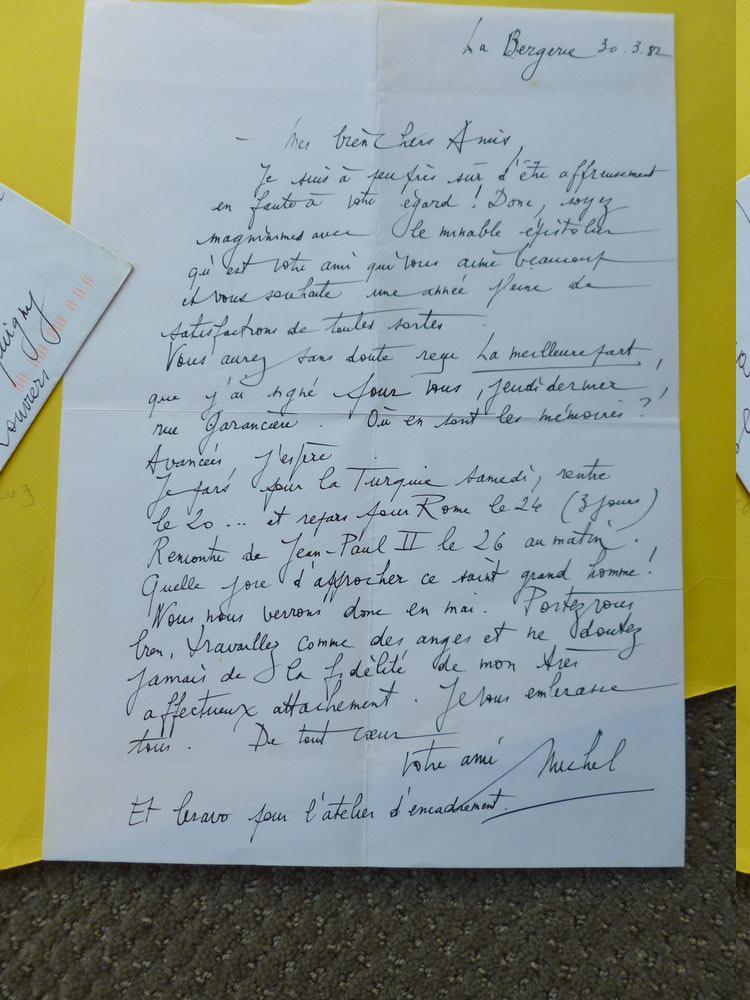 La Bergerie 30.3.82
- Mes bien chers Amis,
Je suis à peu près sûr d'être affreusement
en faute à votre égard ! Donc, soyez
magnanimes avec le minable épistolier
qu'est votre ami qui vous aime beaucoup
et vous souhaite une année pleine de
satisfactions de toutes sortes.
Vous aurez sans doute reçu La meilleure part,
que j'ai signé pour vous, jeudi dernier,
rue Garancière. Où en sont les mémoires ?
Avancées j'espère.
Je pars pour la Turquie samedi, rentre
le 20 ... et repars pour Rome le 24 (3 jours)
Rencontre de Jean-Paul II le 26 au matin.
Quelle joie d'approcher ce saint grand homme !
Nous nous verrons donc en mai. Portez vous
bien, travaillez comme des anges et ne doutez
jamais de la fidélité de mon très
affectueux attachement. Je vous embrasse
tous. De tout cœur
Votre ami Michel
Et bravo pour l'atelier d'encadrement.
Louviers